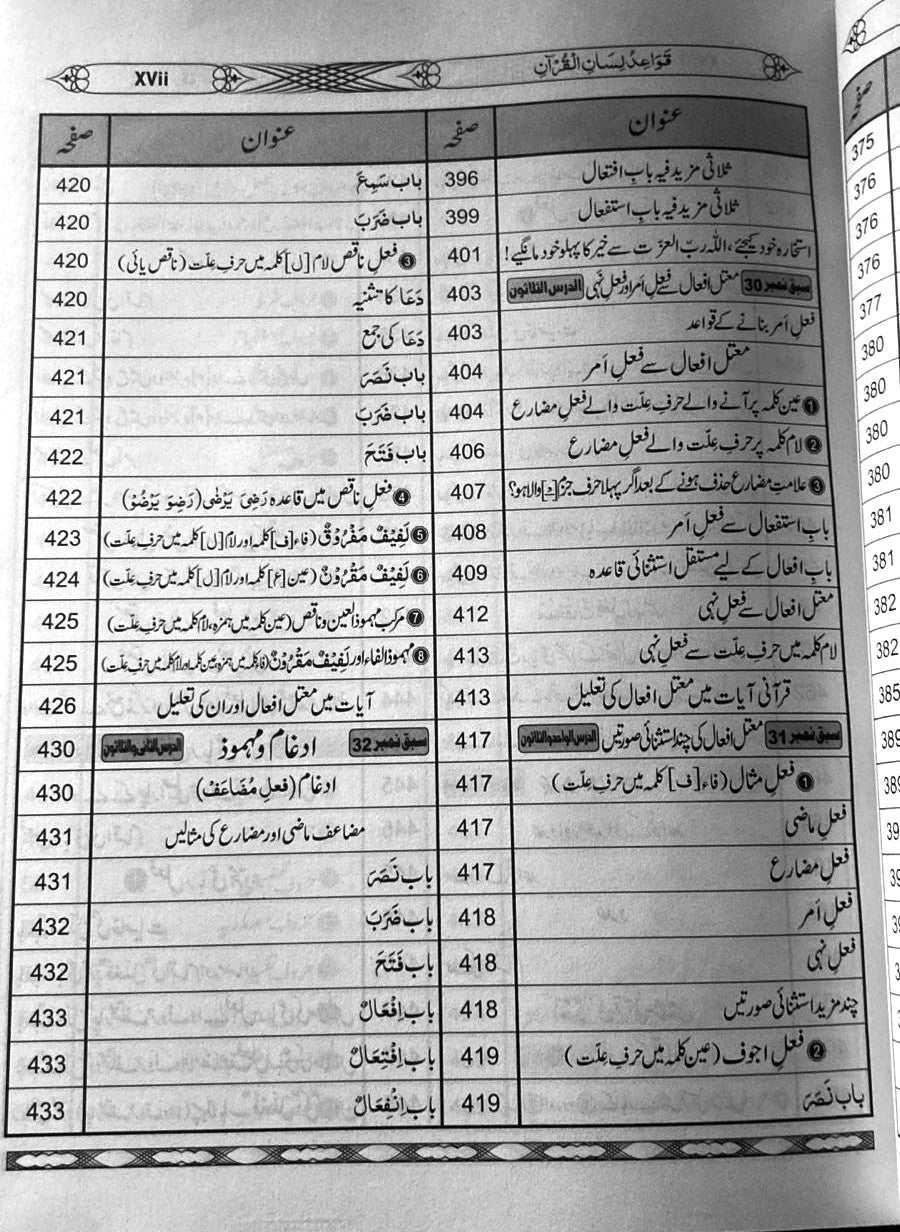 XVii
قَوَاعِدُ لِسَانِ الْقُرْآنِ
عنوان صفحہ
ثلاثی مزید فیہ بابِ افتعال 396
ثلاثی مزید فیہ بابِ استفعال 399
استخارہ خود کیجئے، اللہ ربّ العزّت سے خیر کا پہلو خود مانگیے! 401
سبق نمبر 30 معتل افعال سے فعلِ اَمر اور فعلِ نہی الدرس الثلاثون 403
فعلِ اَمر بنانے کے قواعد 403
معتل افعال سے فعلِ اَمر 404
❶ عین کلمہ پر آنے والے حرفِ علّت والے فعلِ مضارع 404
❷ لام کلمہ پر حرفِ علّت والے فعلِ مضارع 406
❸ علامتِ مضارع حذف ہونے کے بعد اگر پہلا حرف جزم [ـْ] والا ہو؟ 407
بابِ استفعال سے فعلِ اَمر 408
بابِ افعال کے لیے مستقل استثنائی قاعدہ 409
معتل افعال سے فعلِ نہی 412
لام کلمہ میں حرفِ علّت سے فعلِ نہی 413
قرآنی آیات میں معتل افعال کی تعلیل 413
سبق نمبر 31 معتل افعال کی چند استثنائی صورتیں الدرس الواحد والثلاثون 417
❶ فعلِ مثال (فاء [ف] کلمہ میں حرفِ علّت) 417
فعلِ ماضی 417
فعلِ مضارع 417
فعلِ اَمر 418
فعلِ نہی 418
چند مزید استثنائی صورتیں 418
❷ فعلِ اجوف (عین کلمہ میں حرفِ علّت) 419
باب نَصَرَ 419
عنوان صفحہ
باب سَمِعَ 420
باب ضَرَبَ 420
❸ فعلِ ناقص لام [ل] کلمہ میں حرفِ علّت (ناقص یائی) 420
دَعَا کا تثنیہ 420
دَعَا کی جمع 421
باب نَصَرَ 421
باب ضَرَبَ 421
باب فَتَحَ 422
❹ فعلِ ناقص میں قاعدہ رَضِیَ یَرْضٰی (رَضِوَ یَرْضُوْ) 422
❺ لَفِیْفٌ مَفْرُوْقٌ (فاء [ف] کلمہ اور لام [ل] کلمہ میں حرفِ علّت) 423
❻ لَفِیْفٌ مَقْرُوْنٌ (عین [ع] کلمہ اور لام [ل] کلمہ میں حرفِ علّت) 424
❼ مرکب مہموذ العین و ناقص (عین کلمہ میں ہمزہ، لام کلمہ میں حرفِ علّت) 425
❽ مہموذ الفاء اور لَفِیْفٌ مَقْرُوْنٌ (فاء کلمہ میں ہمزہ، عین کلمہ اور لام کلمہ میں حرفِ علّت) 425
آیات میں معتل افعال اور ان کی تعلیل 426
سبق نمبر 32 ادغام و مہموذ الدرس الثانی والثلاثون 430
ادغام (فعلِ مُضَاعَفْ) 430
مضاعف ماضی اور مضارع کی مثالیں 431
باب نَصَرَ 431
باب ضَرَبَ 432
باب فَتَحَ 432
باب اِفْعَالٌ 433
باب اِفْتِعَالٌ 433
باب اِنْفِعَالٌ 433
صفحہ
375
376
376
376
377
380
380
380
380
381
381
382
382
385
389